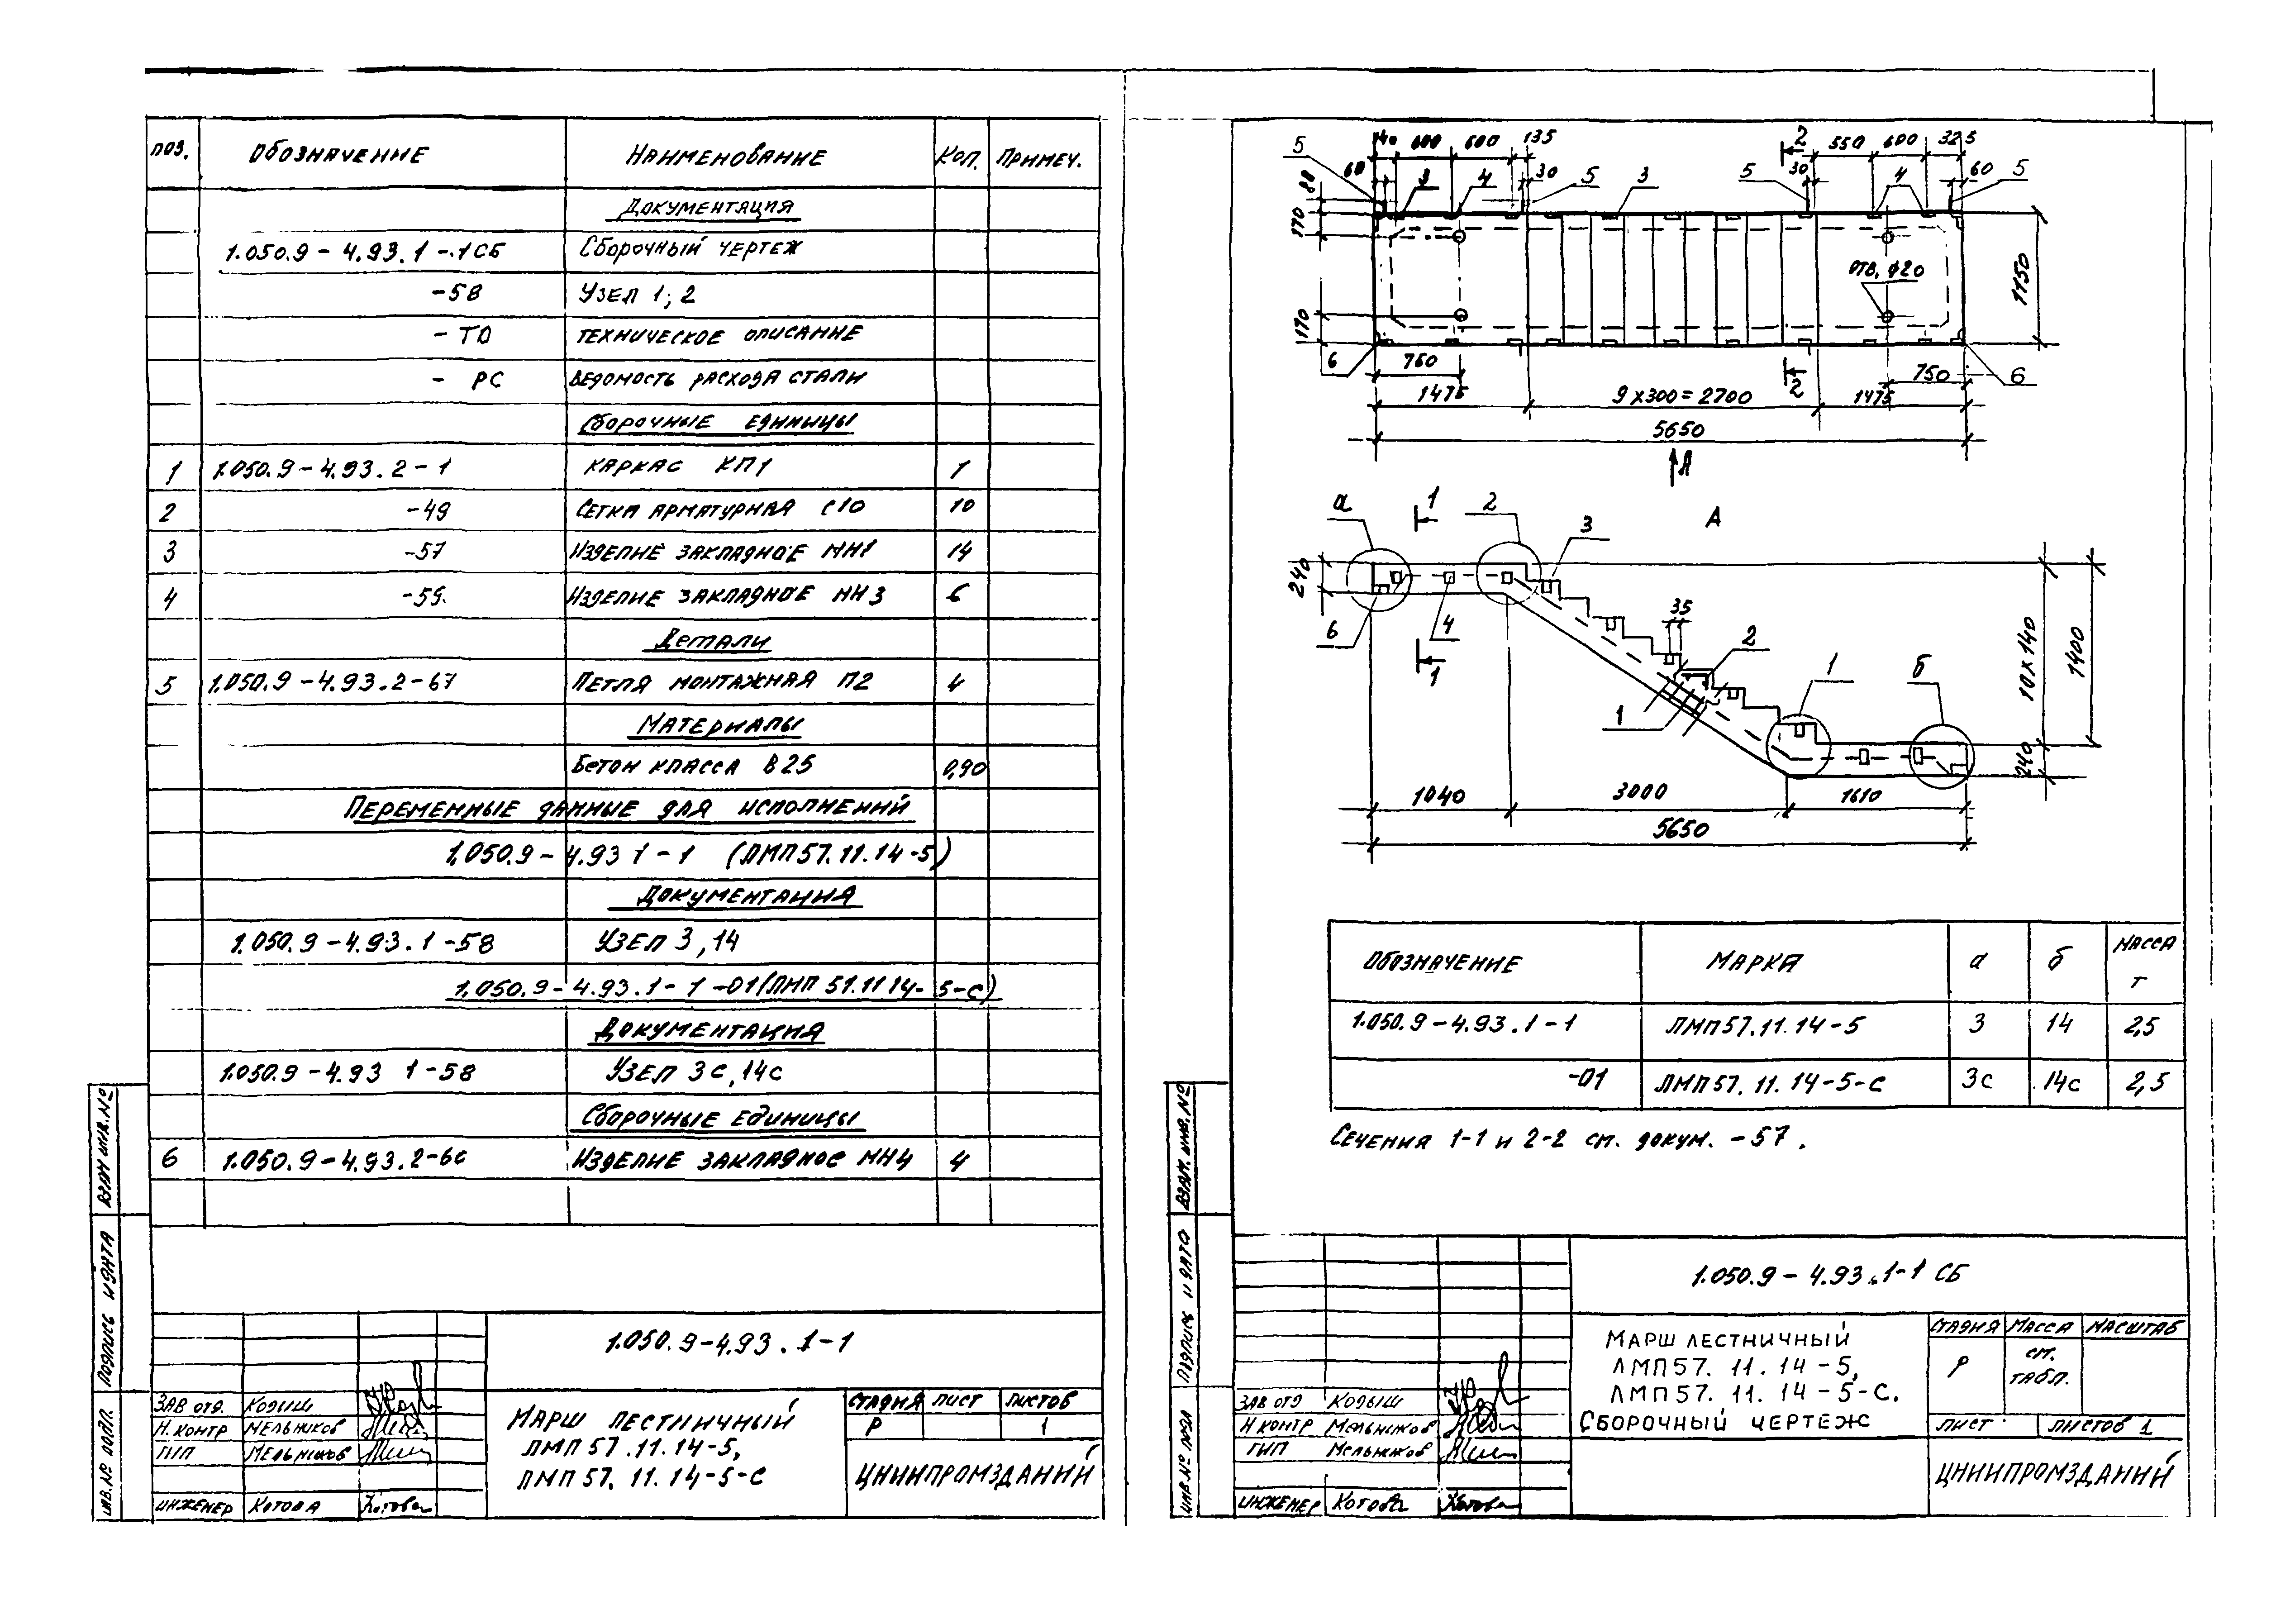 Поз. Обозначение Наименование Кол. Примеч.
Документация
1.050.9-4.93.1-1СБ Сборочный чертеж
-58 Узел 1; 2
-ТО Техническое описание
- РС Ведомость расхода стали
Сборочные единицы
1 1.050.9-4.93.2-1 Каркас КП1 1
2 -49 Сетка арматурная С10 10
3 -57 Изделие закладное МН1 14
4 -59. Изделие закладное МН3 6
Детали
5 1.050.9-4.93.2-67 Петля монтажная П2 4
Материалы
Бетон класса В25 0,90
Переменные данные для исполнений
1.050.9-4.93 1-1 (ЛМП57.11.14-5)
Документация
1.050.9-4.93.1-58 Узел 3,14
1.050.9-4.93.1-1-01(ЛМП 57.11 14-5-С)
Документация
1.050.9-4.93 1-58 Узел 3с,14с
Сборочные единицы
6 1.050.9-4.93.2-60 Изделие закладное МН4 4
1.050.9-4.93.1-1
Зав отд. Кодыш
Н.контр Мельников
ГИП Мельников
Инженер Котова Котова
Марш лестничный
ЛМП57.11.14-5,
ЛМП57.11.14-5-С
Стадия Лист Листов
Р 1
ЦНИИПРОМЗДАНИЙ
Взам инв.№
Подпись и дата
Инв.№ подл.
5 140 600 600 135 2 550 600 325
60 3 4 30 5 3 5 30 4 60 5
80
170
отв. ϕ20
1150
170
6 760 2 750 6
1475 9х300=2700 1475
5650
А
а 1 2 3 А
240
6 4 35 2
1 1 1 б
10х140
1400
240
1040 3000 1610
5650
Обозначение Марка а б Масса т
1.050.9-4.93.1-1 ЛМП57.11.14-5 3 14 2,5
-01 ЛМП57.11.14-5-С 3с 14с 2,5
Сечения 1-1 и 2-2 см. докум. -57.
1.050.9-4.93.1-1 СБ
Зав отд Кодыш
Н контр Мельников
ГИП Мельников
Инженер Котова Котова
Марш лестничный
ЛМП57.11.14-5,
ЛМП57.11.14-5-С.
Сборочный чертеж
Стадия Масса Масштаб
Р см. табл.
Лист Листов 1
ЦНИИПРОМЗДАНИЙ
Взам. инв.№
Подпись и дата
Инв.№ подл